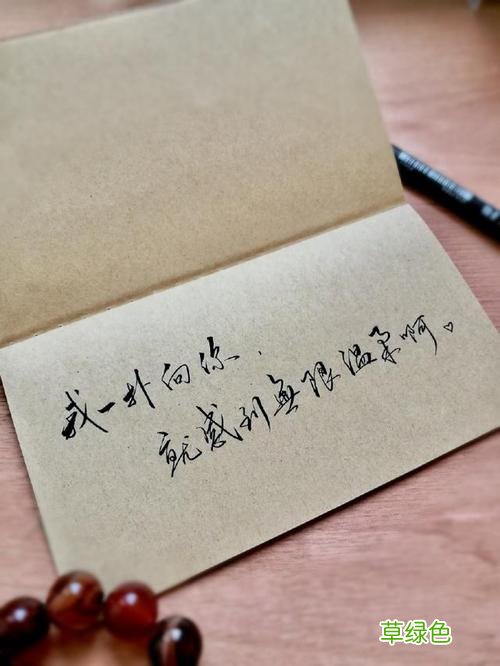 我一扑向你，
就感到無限温柔啊。♡
草绿色